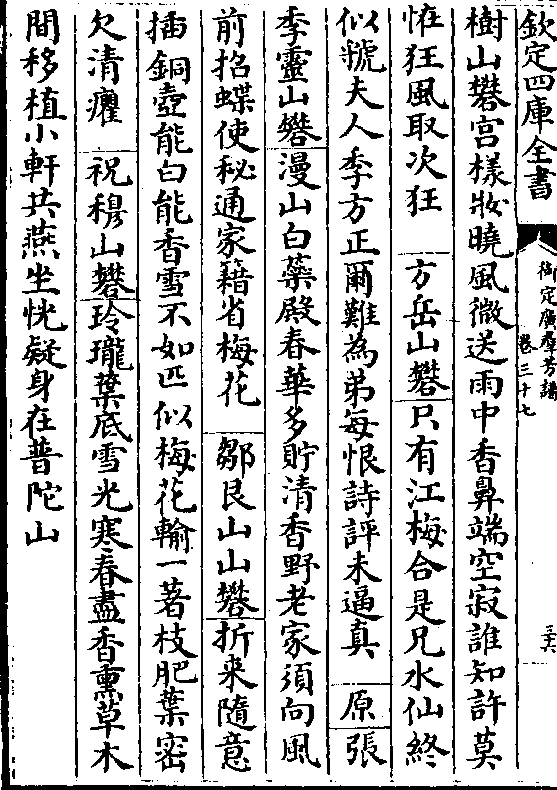 欽定四庫全書
御定廣群芳譜
卷三十七
三六
樹山礬宮樣妝曉風微送雨中香鼻端空寂誰知許莫
怪狂風取次狂 方岳山礬只有江梅合是兄水仙終
似號夫人季方正爾難為弟每恨詩評未逼真 原張
季靈山礬漫山白蘂殿春華多貯清香野老家須向風
前招蝶使秘通家藉省梅花 鄒艮山山礬折来隨意
插銅壺能白能香雪不如匹似梅花輸一著枝肥葉密
欠清癯 祝穆山礬玲瓏葉底雪光寒春盡香熏草木
間移植小軒共燕坐恍疑身在普陀山